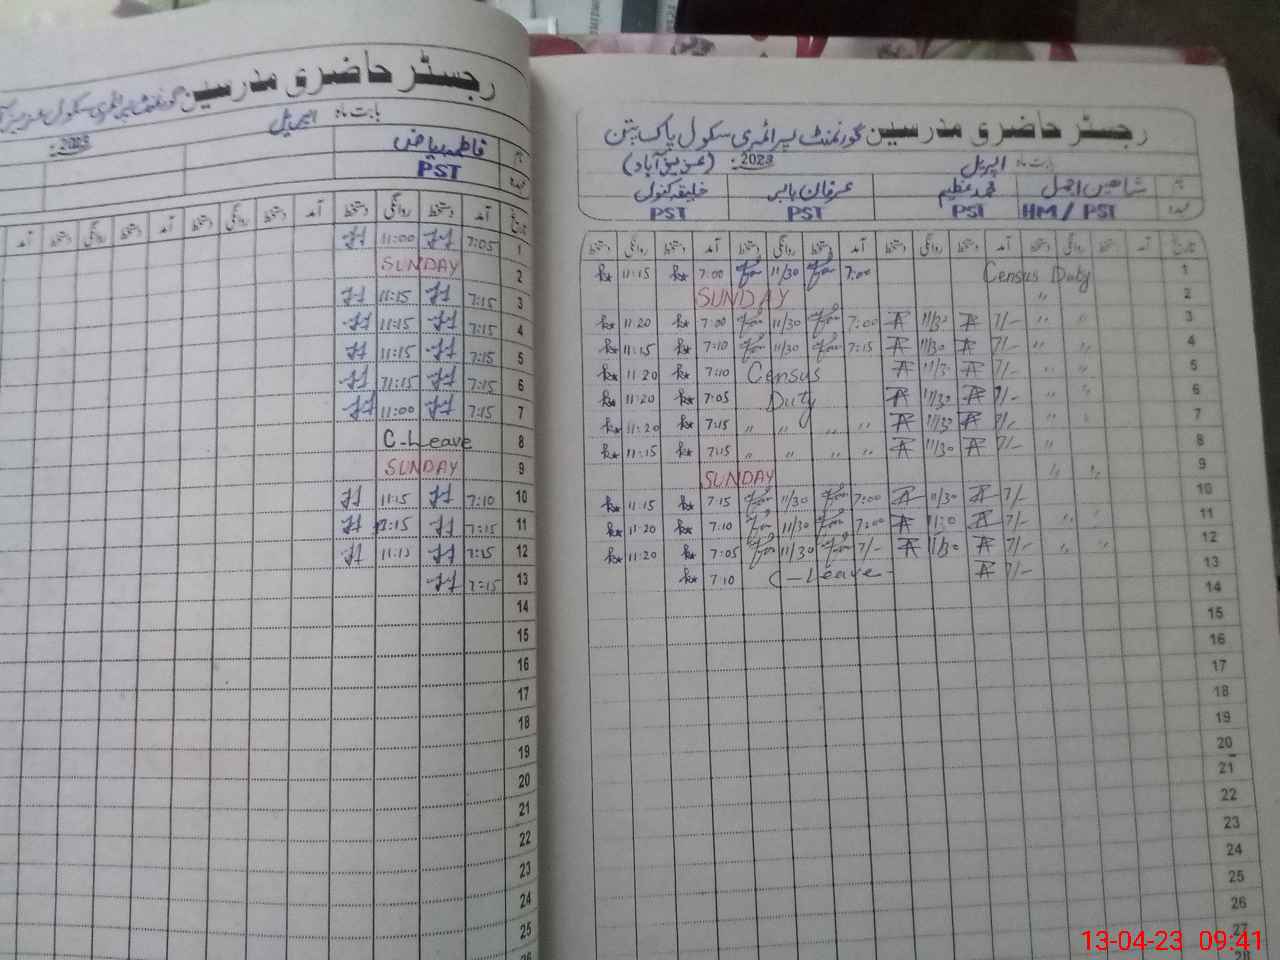 رجسٹر حاضری مدرسین گورنمنٹ پرائمری سکول
بابت ماہ اپریل 2023
نام فاطمہ ریاض
عہدہ PST
تاریخ آمد دستخط روانگی دستخط آمد دستخط روانگی دستخط آمد
1 7:05 11:00
2 SUNDAY
3 7:15 11:15
4 7:15 11:15
5 7:15 11:15
6 7:15 11:15
7 7:15 11:00
8 C-Leave
9 SUNDAY
10 7:10 11:15
11 7:15
12 7:15
13 7:15
14
15
16
17
18
19
20
21
22
23
24
25
رجسٹر حاضری مدرسین گورنمنٹ پرائمری سکول پاکپتن
بابت ماہ اپریل 2023 (عزیز آباد)
نام شاھین اجمل محمد عظیم عرفان بابر
عہدہ HM / PST PST PST PST
تاریخ آمد دستخط روانگی دستخط آمد دستخط روانگی دستخط آمد دستخط روانگی دستخط آمد دستخط روانگی دستخط
1 Census Duty 7:00 11/30 7:00 11:15
2 " SUNDAY
3 " " 7/- 11/30 7:00 11/30 7:00 11:20
4 " " 7/- 11/30 7:15 11/30 7:10 11:15
5 " " 7/- 11/30 Census 7:10 11:20
6 " " 7/- 11/30 Duty 7:05 11:20
7 " 7/- 11/30 " " " " 7:15 11:20
8 " 7/- 11/30 " " " " 7:15 11:15
9 " " SUNDAY
10 7/- 11/30 7:00 11/30 7:15 11:15
11 " " 7/- 7:00 11/30 7:10 11:20
12 " " 7/- 11/30 7/- 11/30 7:05 11:20
13 7/- C-Leave 7:10
14
15
16
17
18
19
20
21
22
23
24
25
26
27
28
13-04-23 09:41